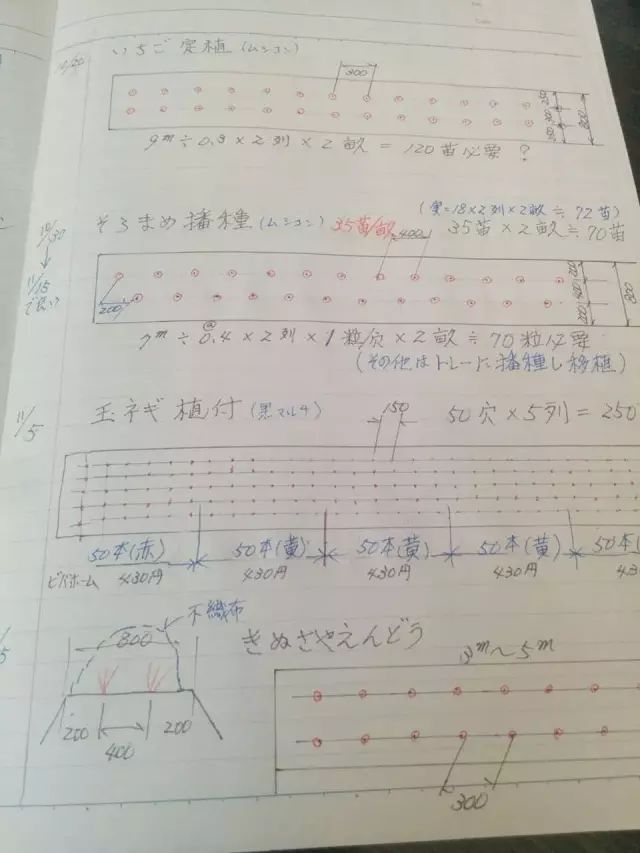 いちご定植(ムシコン)
300
250
800
9m÷0.3×2列×2畝=120苗必要?
10/30
↓
11/15
でもいい
そらまめ播種(ムシコン) 35苗/畝
(実=18×2列×2畝≒72苗)
35苗×2畝≒70苗
400
200
800
7m÷0.4×2列×1粒/穴×2畝≒70粒必要
(その他はトレーに播種し移植)
11/5
玉ネギ植付(黒マルチ)
150
50穴×5列=250
50本(赤) 50本(黄) 50本(黄) 50本(黄) 50本(
ビバホーム 430円 430円 430円 430円 430
不織布
800
200 400 200
きぬさやえんどう
3m～5m
300